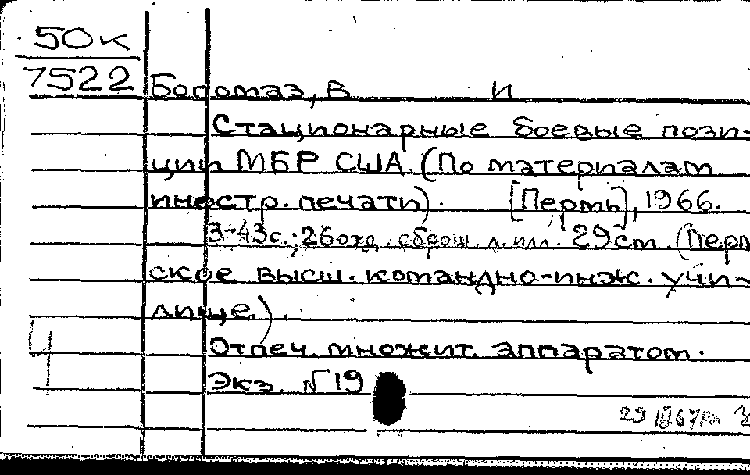 50к
7522
Богомаз, В И
Стационарные боевые пози-
ции МБР США. (По материалам
иностр. печати). [Пермь], 1966.
3-43с.; 26 отд. сброш. л. илл. 29см. (Перм
ское высш. командно-инж. учи-
лище).
Отпеч. множит. аппаратом.
Экз. №19
29